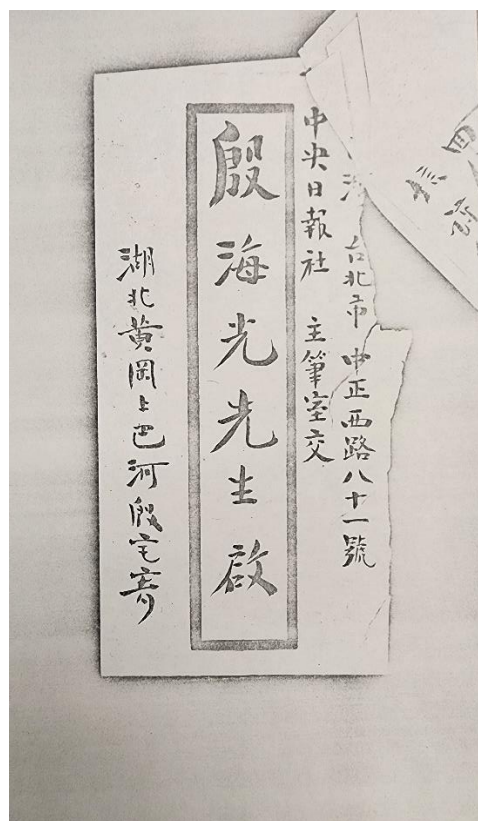 台北市 中正西路八十一號
中央日報社 主筆室交
殷海光先生啟
湖北黃岡上巴河殷宅寄